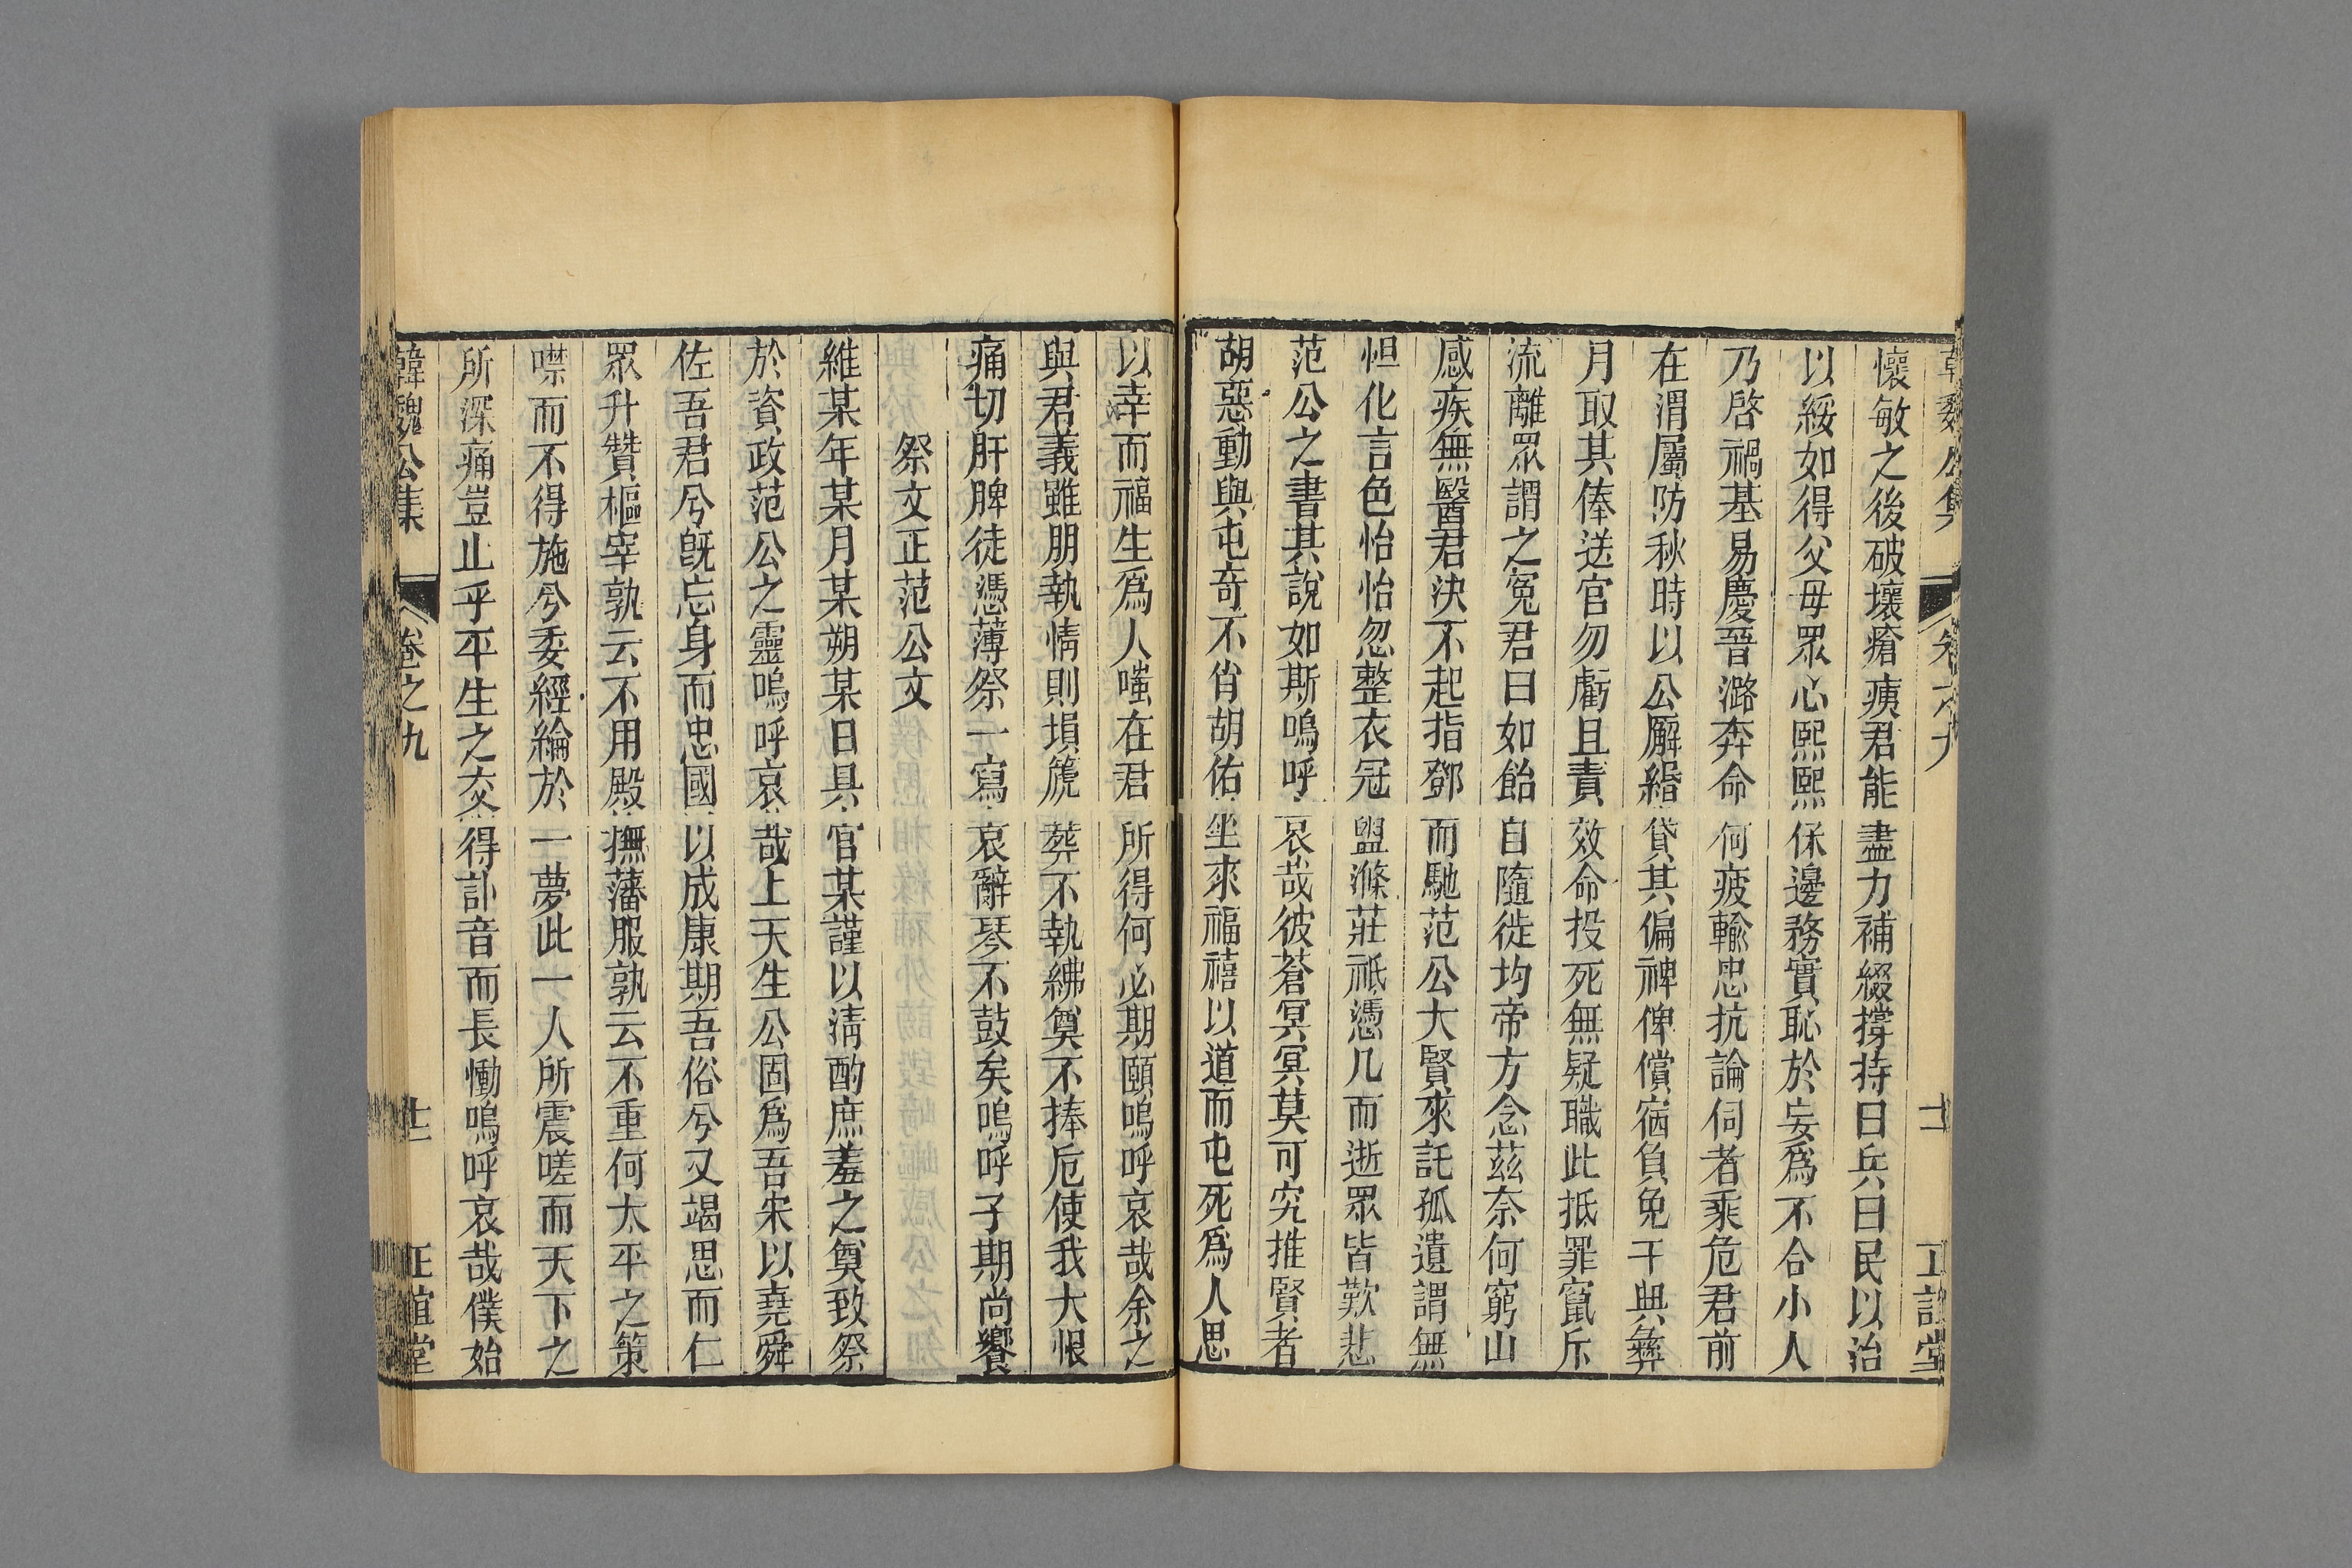 懷敏之後破壞瘡痍君能盡力補綴撐持曰兵曰民以治
以綏如得父母眾心熙熙保邊務實恥於妄爲不合小人
乃啓禍基易慶晉潞奔命何疲輸忠抗論伺者乘危君前
在渭屬防秋時以公廨緡貸其偏裨俾償宿負免干典彝
月取其俸送官勿虧且責效命投死無疑職此抵罪竄斥
流離眾謂之冤君曰如飴自隨徙均帝方念茲奈何窮山
感疾無醫君決不起指鄧而馳范公大賢來託孤遺謂無
怛化言色怡怡忽整衣冠盥滌莊祗憑几而逝眾皆歎悲
范公之書其說如斯嗚呼哀哉彼蒼冥冥莫可究推賢者
胡惡動與屯奇不肖胡佑坐來福禧以道而屯死爲人思
以幸而福生爲人嗤在君所得何必期頤嗚呼哀哉余之
與君義雖朋執情則塤篪葬不執紼奠不捧卮使我大恨
痛切肝脾徒憑薄祭一寫哀辭琴不鼓矣嗚呼子期尚饗
祭文正范公文
維某年某月某朔某日具官某謹以淸酌庶羞之奠致祭
於資政范公之靈嗚呼哀哉上天生公固爲吾宋以堯舜
佐吾君兮旣忘身而忠國以成康期吾俗兮又竭思而仁
眾升贊樞宰孰云不用殿撫藩服孰云不重何太平之策
噤而不得施兮委經綸於一夢此一人所震嗟而天下之
所深痛豈止乎平生之交得訃音而長慟嗚呼哀哉僕始
韓魏公集
卷之九
十二
正誼堂